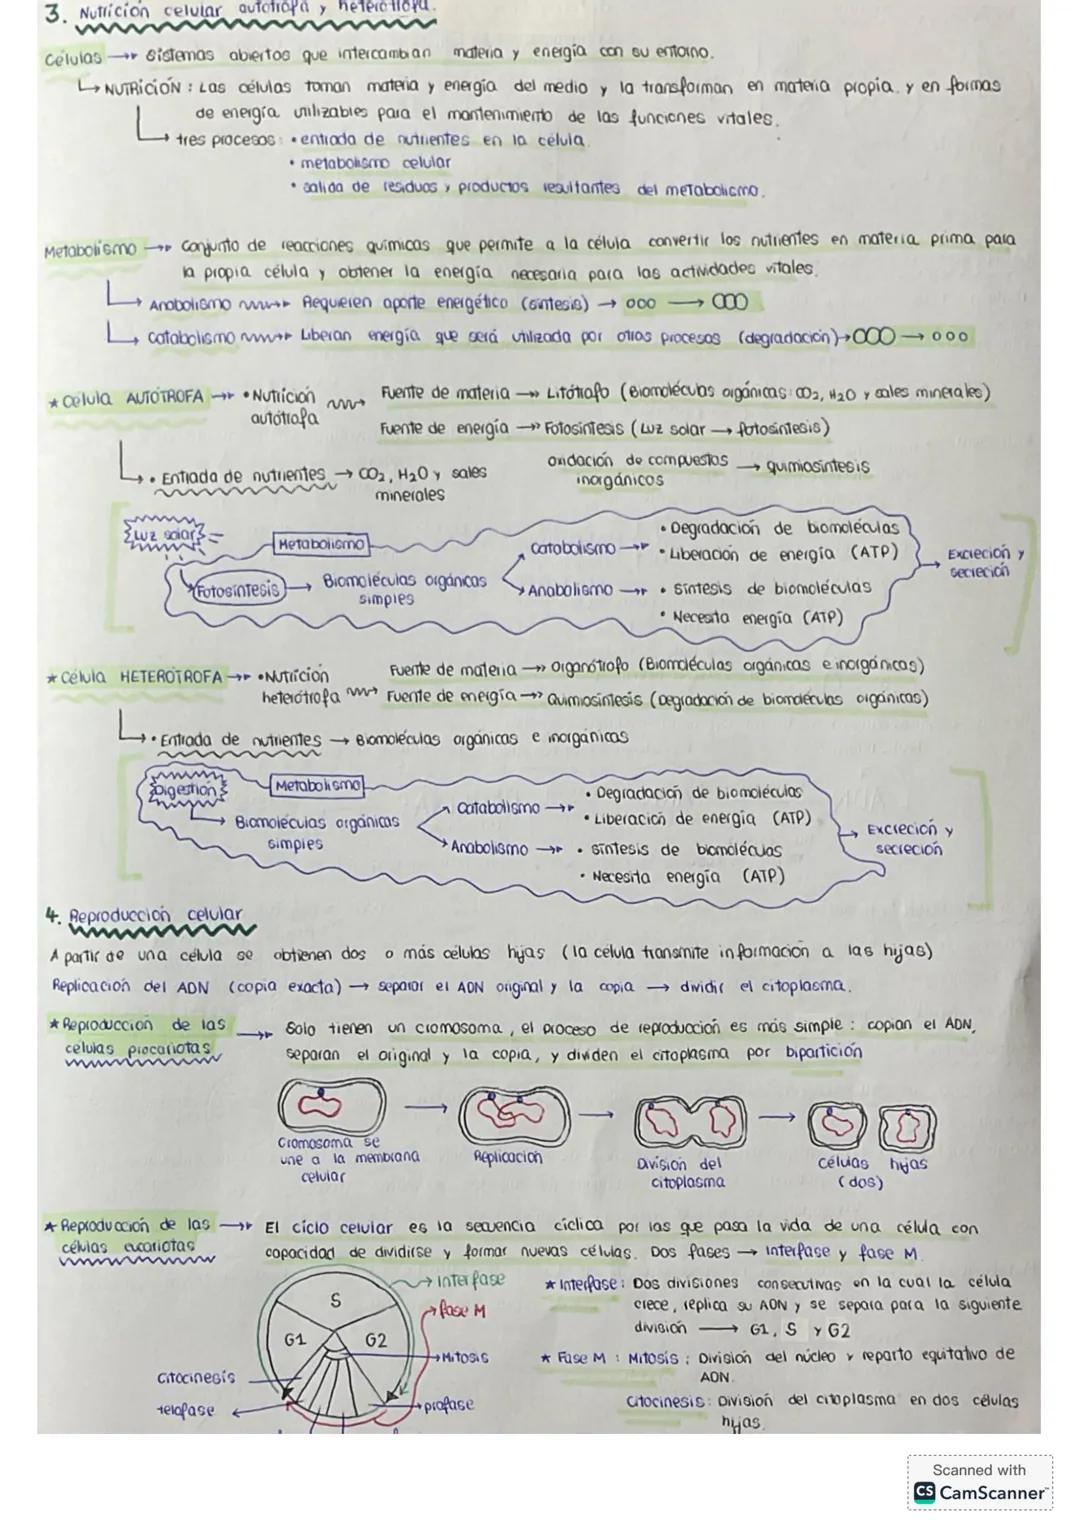 3. Nutrición celular autótrofa y heterótrofa.
Células → Sistemas abiertos que intercambian materia y energía con su entorno.
↳ NUTRICIÓN : Las células toman materia y energía del medio y la transforman en materia propia y en formas
de energía utilizables para el mantenimiento de las funciones vitales.
↳ tres procesos: • entrada de nutrientes en la célula.
• metabolismo celular
• salida de residuos y productos resultantes del metabolismo.
Metabolismo → Conjunto de reacciones químicas que permite a la célula convertir los nutrientes en materia prima para
la propia célula y obtener la energía necesaria para las actividades vitales.
↳ Anabolismo → Requieren aporte energético (síntesis) → ooo → OOO
↳ Catabolismo → Liberan energía que será utilizada por otros procesos (degradación) → OOO → ooo
* Célula AUTÓTROFA → • Nutrición autótrofa
Fuente de materia → Litótrofo (Biomoléculas orgánicas: CO2, H2O y sales minerales)
Fuente de energía → Fotosíntesis (Luz solar → fotosíntesis)
oxidación de compuestos inorgánicos → quimiosíntesis
↳ • Entrada de nutrientes → CO2, H2O y sales
minerales
Luz solar
Metabolismo
Fotosíntesis → Biomoléculas orgánicas
simples
Catabolismo → • Degradación de biomoléculas
• Liberación de energía (ATP)
Anabolismo → • Síntesis de biomoléculas
• Necesita energía (ATP)
Excreción y
secreción
* Célula HETERÓTROFA → • Nutrición
heterótrofa
Fuente de materia → Organótrofo (Biomoléculas orgánicas e inorgánicas)
Fuente de energía → Quimiosíntesis (Degradación de biomoléculas orgánicas)
↳ • Entrada de nutrientes → Biomoléculas orgánicas e inorgánicas
Digestión
Metabolismo
↳ Biomoléculas orgánicas
simples
Catabolismo → • Degradación de biomoléculas
• Liberación de energía (ATP)
Anabolismo → • Síntesis de biomoléculas
• Necesita energía (ATP)
Excreción y
secreción
4. Reproducción celular
A partir de una célula se obtienen dos o más células hijas (la célula transmite información a las hijas)
Replicación del ADN (copia exacta) → separar el ADN original y la copia → dividir el citoplasma.
* Reproducción de las → Solo tienen un cromosoma, el proceso de reproducción es más simple : copian el ADN,
células procariotas separan el original y la copia, y dividen el citoplasma por bipartición
Cromosoma se
une a la membrana
celular
Replicación
División del
citoplasma
Células hijas
(dos)
* Reproducción de las → El ciclo celular es la secuencia cíclica por las que pasa la vida de una célula con
células eucariotas capacidad de dividirse y formar nuevas células. Dos fases → Interfase y fase M.
→ Interfase
→ fase M
S
G1
G2
→ Mitosis
Citocinesis
telofase
→ profase
* Interfase: Dos divisiones consecutivas en la cual la célula
crece, replica su ADN y se separa para la siguiente
división → G1, S y G2
* Fase M : Mitosis : División del núcleo y reparto equitativo de
ADN.
Citocinesis: División del citoplasma en dos células
hijas.
Scanned with
CS CamScanner